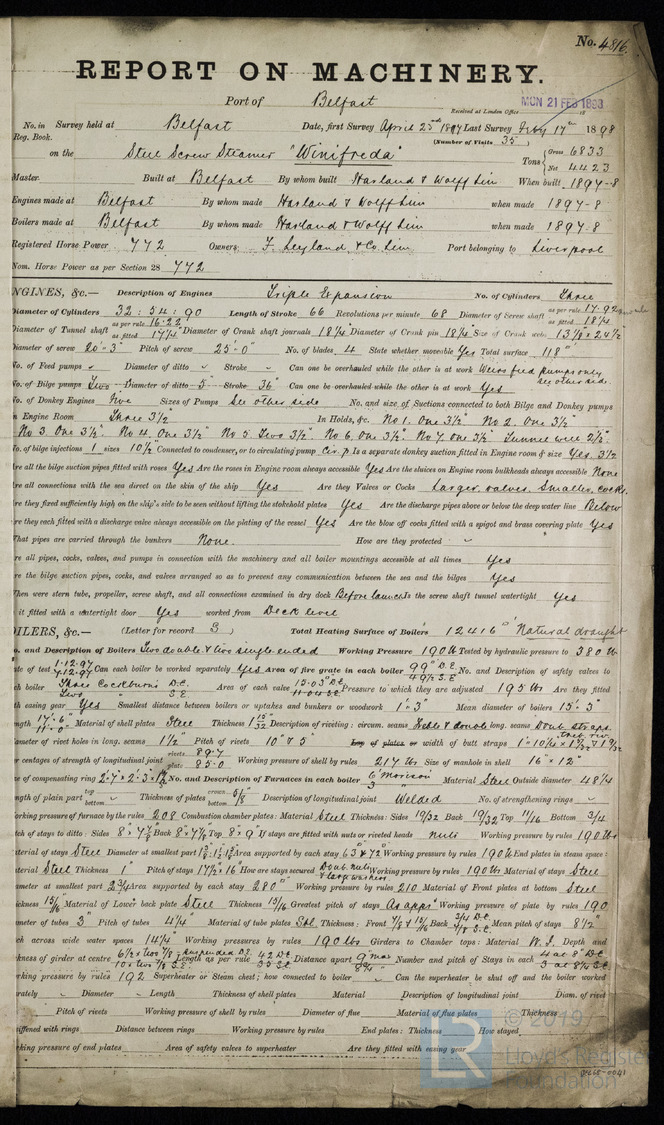 No. 4816.
REPORT ON MACHINERY.
Port of Belfast
Received at London Office MON 21 FEB 1898
No. in Survey held at Belfast Date, first Survey April 23rd 1897 Last Survey Feby 17th 1898
Reg. Book. (Number of Visits 35)
on the Steel Screw Steamer "Winifreda" Tons { Gross 6833
Net 4423
Master Built at Belfast By whom built Harland & Wolff Lim When built 1897-8
Engines made at Belfast By whom made Harland & Wolff Lim when made 1897-8
Boilers made at Belfast By whom made Harland & Wolff Lim when made 1897-8
Registered Horse Power 772 Owners F. Leyland & Co. Lim Port belonging to Liverpool
Nom. Horse Power as per Section 28 772
NGINES, &c.— Description of Engines Triple Expansion No. of Cylinders Three
Diameter of Cylinders 32 : 54 : 90 Length of Stroke 66 Revolutions per minute 68 Diameter of Screw shaft as per rule 17.92 as fitted 18 1/4
Diameter of Tunnel shaft as per rule 16.22 as fitted 17 1/4 Diameter of Crank shaft journals 18 1/4 Diameter of Crank pin 18 1/4 Size of Crank webs 13 1/8 × 24 1/2
Diameter of screw 20'-3" Pitch of screw 25'-0" No. of blades 4 State whether moveable Yes Total surface 118
No. of Feed pumps Diameter of ditto Stroke Can one be overhauled while the other is at work Weirs feed pumps only see other side.
No. of Bilge pumps Two Diameter of ditto 5" Stroke 36" Can one be overhauled while the other is at work Yes
No. of Donkey Engines Five Sizes of Pumps See other side No. and size of Suctions connected to both Bilge and Donkey pumps
in Engine Room Three 3 1/2" In Holds, &c. No 1. One 3 1/2" No 2. One 3 1/2"
No 3. One 3 1/2" No 4. One 3 1/2" No 5. Two 3 1/2" No 6. One 3 1/2" No 7. One 3 1/2" Tunnel well 2 1/2"
No. of bilge injections 1 sizes 10 1/2 Connected to condenser, or to circulating pump Cir. p Is a separate donkey suction fitted in Engine room & size Yes. 3 1/2
re all the bilge suction pipes fitted with roses Yes Are the roses in Engine room always accessible Yes Are the sluices on Engine room bulkheads always accessible None
re all connections with the sea direct on the skin of the ship Yes Are they Valves or Cocks Larger, valves. Smaller, cocks.
re they fixed sufficiently high on the ship's side to be seen without lifting the stokehold plates Yes Are the discharge pipes above or below the deep water line Below
re they each fitted with a discharge valve always accessible on the plating of the vessel Yes Are the blow off cocks fitted with a spigot and brass covering plate Yes
What pipes are carried through the bunkers None. How are they protected
re all pipes, cocks, valves, and pumps in connection with the machinery and all boiler mountings accessible at all times Yes
re the bilge suction pipes, cocks, and valves arranged so as to prevent any communication between the sea and the bilges Yes
When were stern tube, propeller, screw shaft, and all connections examined in dry dock Before launch Is the screw shaft tunnel watertight Yes
it fitted with a watertight door Yes worked from Deck level
OILERS, &c.— (Letter for record S) Total Heating Surface of Boilers 12416 Natural draught
o. and Description of Boilers Two double & two single ended Working Pressure 190 lbs Tested by hydraulic pressure to 380 lbs
ate of test 1-12-97 7-12-97 Can each boiler be worked separately Yes Area of fire grate in each boiler 99 D.E. 49 1/2 S.E. No. and Description of safety valves to
ch boiler Three Cockburns D.E. Two S.E. Area of each valve 15.03 D.E. 11.04 S.E. Pressure to which they are adjusted 195 lbs Are they fitted
th easing gear Yes Smallest distance between boilers or uptakes and bunkers or woodwork 1'-3" Mean diameter of boilers 15'-3"
ngth 17'-6" 11'-0" Material of shell plates Steel Thickness 1 15/32 Description of riveting: circum. seams Treble & double long. seams Doub. straps. treb. riv.
ameter of rivet holes in long. seams 1 1/2 Pitch of rivets 10" & 5" Lap of plates or width of butt straps
er centages of strength of longitudinal joint rivets 89.7 plate 85.0 Working pressure of shell by rules 217 lbs Size of manhole in shell 16" × 12"
e of compensating ring No. and Description of Furnaces in each boiler 6 Morison 3 Material Steel Outside diameter 48 1/4
ngth of plain part top bottom Thickness of plates crown bottom 5/8 Description of longitudinal joint Welded No. of strengthening rings
orking pressure of furnace by the rules 208 Combustion chamber plates: Material Steel Thickness: Sides 19/32 Back 19/32 Top 11/16 Bottom 3/4
tch of stays to ditto: Sides 8" × 7 7/8 Back 8" × 7 7/8 Top 8" × 9" If stays are fitted with nuts or riveted heads nuts Working pressure by rules 190 lbs
aterial of stays Steel Diameter at smallest part Area supported by each stay 63 & 72 Working pressure by rules 190 lb End plates in steam space:
aterial Steel Thickness 1" Pitch of stays 17 1/2 × 16" How are stays secured Doub. nuts & large washers Working pressure by rules 190 lb Material of stays Steel
ameter at smallest part 2 3/4 Area supported by each stay 280 Working pressure by rules 210 Material of Front plates at bottom Steel
ickness 15/16 Material of Lower back plate Steel Thickness 15/16 Greatest pitch of stays As appd Working pressure of plate by rules 190
ameter of tubes 3" Pitch of tubes 4 1/4" Material of tube plates Stl. Thickness: Front 7/8 & 15/16 Back 3/4 D.E. 7/8 S.E. Mean pitch of stays 8 1/2"
ch across wide water spaces 14 1/4" Working pressures by rules 190 lbs Girders to Chamber tops: Material W. I. Depth and
ckness of girder at centre Length as per rule 42 D.E. 35 S.E. Distance apart 9" max 8 3/4" Number and pitch of Stays in each 4 at 8" D.E. 3 at 8 1/4 S.E.
orking pressure by rules 192 Superheater or Steam chest; how connected to boiler Can the superheater be shut off and the boiler worked
rately Diameter Length Thickness of shell plates Material Description of longitudinal joint Diam. of rivet
Pitch of rivets Working pressure of shell by rules Diameter of flue Material of flue plates Thickness
iffened with rings Distance between rings Working pressure by rules End plates: Thickness How stayed
rking pressure of end plates Area of safety valves to superheater Are they fitted with easing gear
© 2019
Lloyd's Register
Foundation